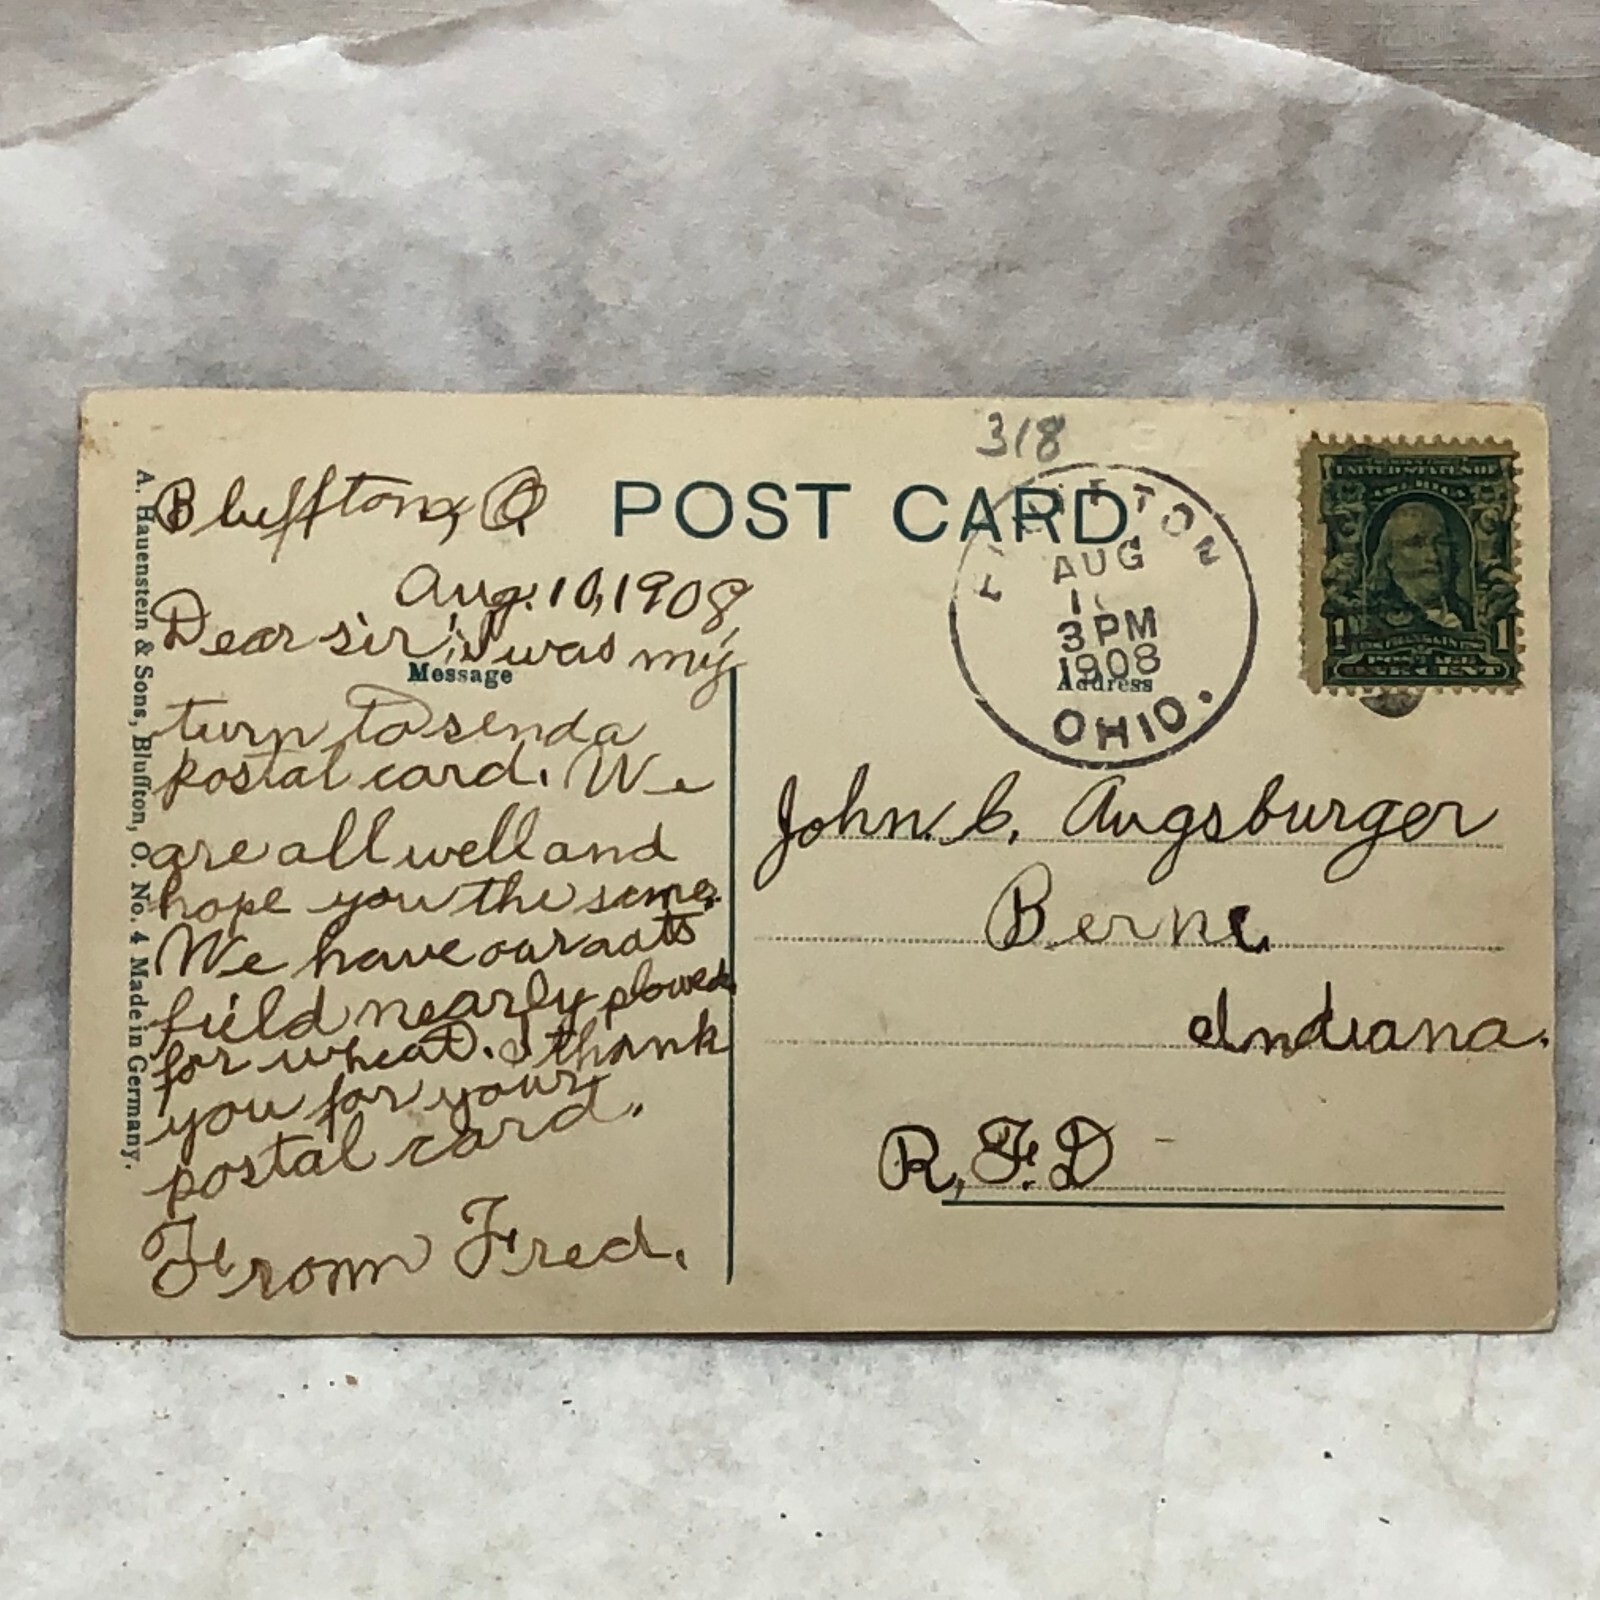 318
POST CARD
Bluffton, O
Aug. 10, 1908,
Dear sir; I was my
Message
turn to send a
postal card. We
are all well and
hope you the same.
We have our oats
field nearly plowed
for wheat. I thank
you for your
postal card.
From Fred.
A. Hauenstein & Sons, Bluffton, O. No. 4 Made in Germany.
AUG
3 PM
1908
OHIO.
Address
UNITED STATES OF
AMERICA
1 1
FRANKLIN
POSTAGE
ONE CENT
John. C. Augsburger
Berne
Indiana.
R, F. D